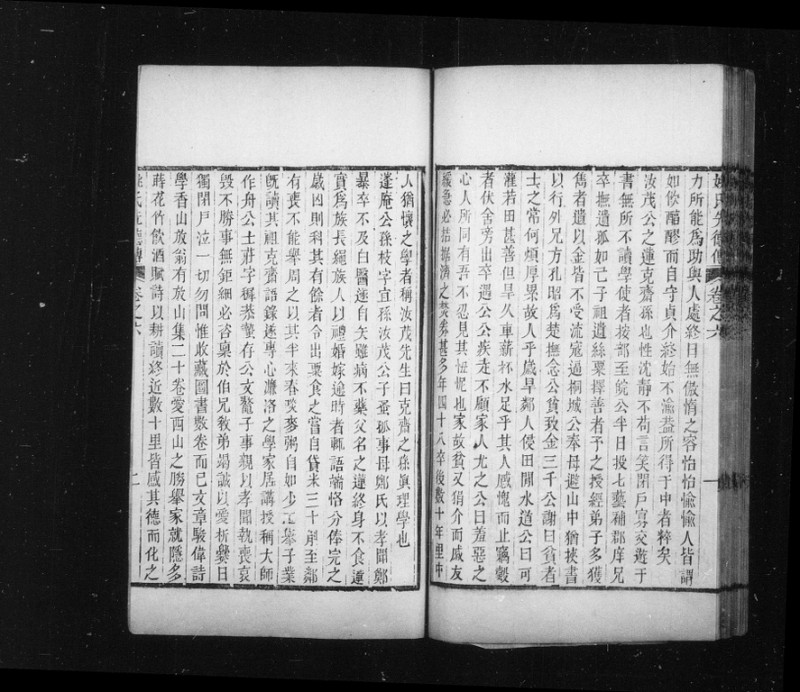 姚氏先德傳 卷之六
力所能爲助與人處終日無傲惰之容怡怡愉愉人皆謂
如飲醇醪而自守貞介終始不渝蓋所得于中者粹矣
汝茂公之蓮克齋孫也性沈靜不苟言笑閉戶寡交遊于
書無所不讀學使者按部至皖公半日授七藝補郡庠兄
卒撫遺孤如己子祖遺絲粟擇善者予之授經弟子多獲
雋者遺以金皆不受流寇逼桐城公奉母避山中猶挾書
以行外兄方孔昭爲楚撫念公貧致金三千公謝曰貧者
士之常何煩厚累故人乎歲旱鄰人侵田開水道公曰可
灌若田甚善但旱久車薪杯水足乎其人感愧而止竊穀
者伏舍旁出卒遇公公疾走不願家人尤之公曰羞惡之
心人所同有吾不忍見其忸怩也家故貧又狷介而戚友
緩急必拮据濟之焚券甚多年四十八卒後數十年里中
人猶懷之學者稱汝茂先生曰克齋之孫眞理學也
蓬庵公孫枝字宜孫汝茂公子蚤孤事母鄭氏以孝聞鄭
暴卒不及白醫遂自矢雖病不藥父名之蓮終身不食蓮
實爲族長繩族人以禮婚嫁逾時者輒語端恪分俸完之
歲凶則科其有餘者令出粟食之嘗自貸米三十斛至鄰
有喪不能舉周之以其半來春啖麥粥自如少不舉子業
既讀其祖克齋語錄遂專心濂洛之學家居講授稱大師
作舟公士莊字穉恭瑩存公文鰲子事親以孝聞執喪哀
毀不勝事無鉅細必咨稟於伯兄敎弟竭誠以愛析爨日
獨閉戶泣一切勿問惟收藏圖書數卷而已文章駿偉詩
學香山放翁有放山集二十卷愛西山之勝舉家就隱多
蒔花竹飲酒賦詩以耕讀終近數十里皆感其德而化之
卷之六
二